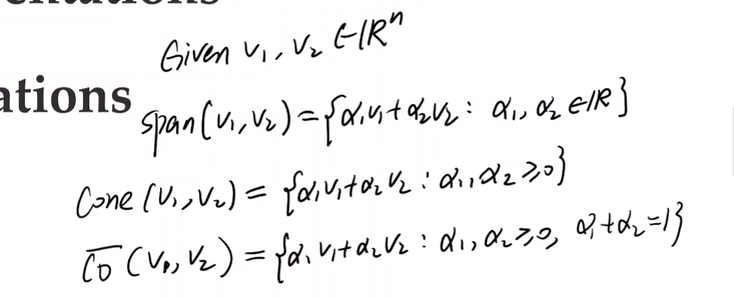 entations
Given v₁, v₂ ∈ ℝⁿ
ations
span(v₁, v₂) = {α₁v₁ + α₂v₂ : α₁, α₂ ∈ ℝ}
Cone (v₁, v₂) = {α₁v₁ + α₂v₂ : α₁, α₂ ≥ 0}
C̅O̅ (v₁, v₂) = {α₁v₁ + α₂v₂ : α₁, α₂ ≥ 0, α₁ + α₂ = 1}